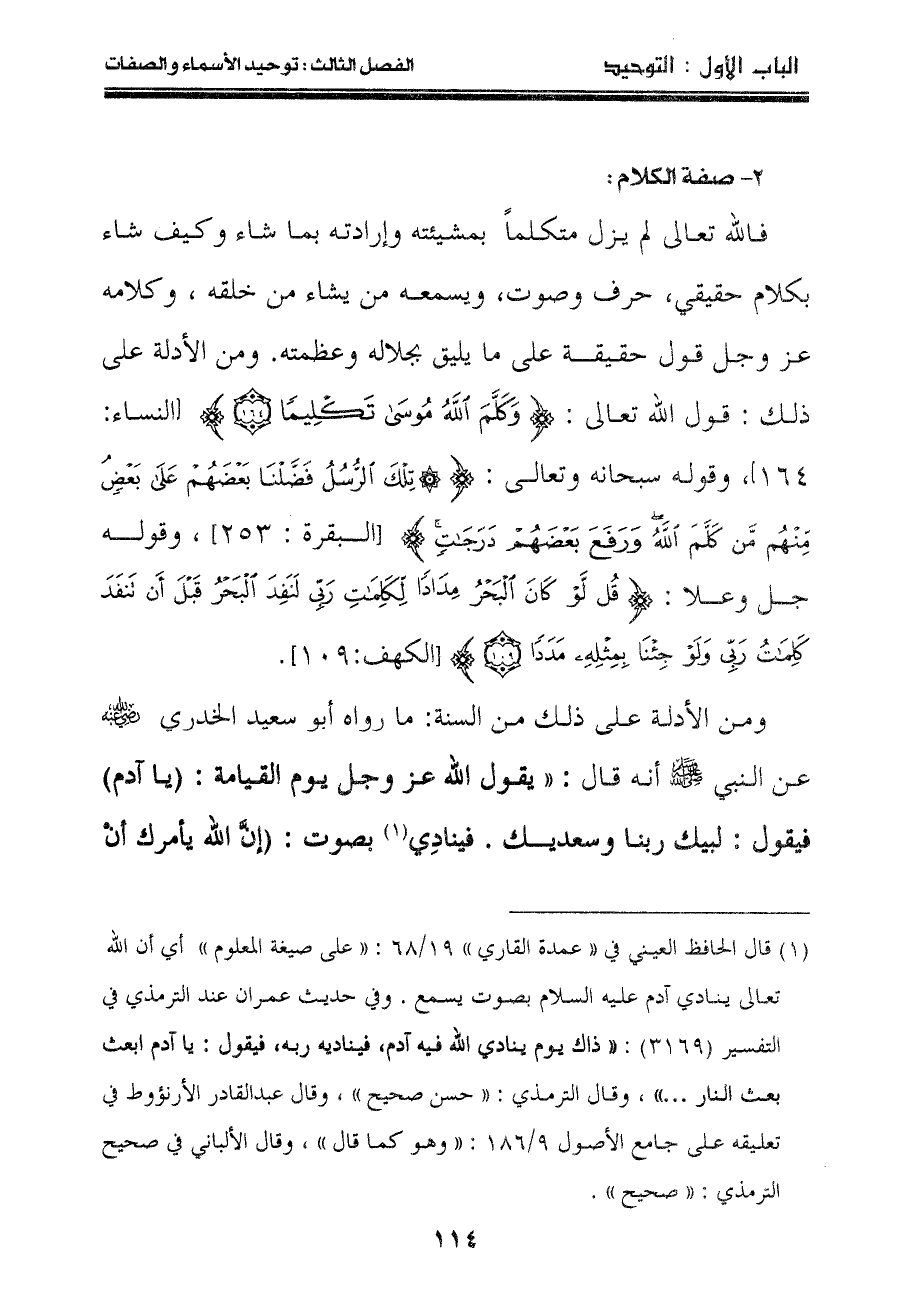 الباب الأول : التوحيد الفصل الثالث: توحيد الأسماء والصفات
٢- صفة الكلام:
فالله تعالى لم يزل متكلماً بمشيئته وإرادته بما شاء وكيف شاء
بكلام حقيقي، حرف وصوت، ويسمعه من يشاء من خلقه ، وكلامه
عز وجل قول حقيقة على ما يليق بجلاله وعظمته. ومن الأدلة على
ذلك : قول الله تعالى : ﴿ وَكَلَّمَ ٱللَّهُ مُوسَىٰ تَكْلِيمًا ١٦٤ ﴾ [النساء:
١٦٤]، وقوله سبحانه وتعالى : ﴿ ۞ تِلْكَ ٱلرُّسُلُ فَضَّلْنَا بَعْضَهُمْ عَلَىٰ بَعْضٍۘ
مِّنْهُم مَّن كَلَّمَ ٱللَّهُۖ وَرَفَعَ بَعْضَهُمْ دَرَجَٰتٍۚ ﴾ [البقرة : ٢٥٣] ، وقوله
جل وعلا : ﴿ قُل لَّوْ كَانَ ٱلْبَحْرُ مِدَادًا لِّكَلِمَٰتِ رَبِّى لَنَفِدَ ٱلْبَحْرُ قَبْلَ أَن تَنفَدَ
كَلِمَٰتُ رَبِّى وَلَوْ جِئْنَا بِمِثْلِهِۦ مَدَدًا ١٠٩ ﴾ [الكهف:١٠٩].
ومن الأدلة على ذلك من السنة: ما رواه أبو سعيد الخدري رضي الله عنه
عن النبي ﷺ أنه قال : « يقول الله عز وجل يوم القيامة : (يا آدم)
فيقول : لبيك ربنا وسعديك . فينادِي(١) بصوت : (إنَّ الله يأمرك أنْ
(١) قال الحافظ العيني في « عمدة القاري » ٦٨/١٩ : « على صيغة المعلوم » أي أن الله
تعالى ينادي آدم عليه السلام بصوت يسمع . وفي حديث عمران عند الترمذي في
التفسير (٣١٦٩) : « ذاك يوم ينادي الله فيه آدم، فيناديه ربه، فيقول : يا آدم ابعث
بعث النار ...» ، وقال الترمذي : « حسن صحيح » ، وقال عبدالقادر الأرنؤوط في
تعليقه على جامع الأصول ١٨٦/٩ : « وهو كما قال » ، وقال الألباني في صحيح
الترمذي : « صحيح » .
١١٤